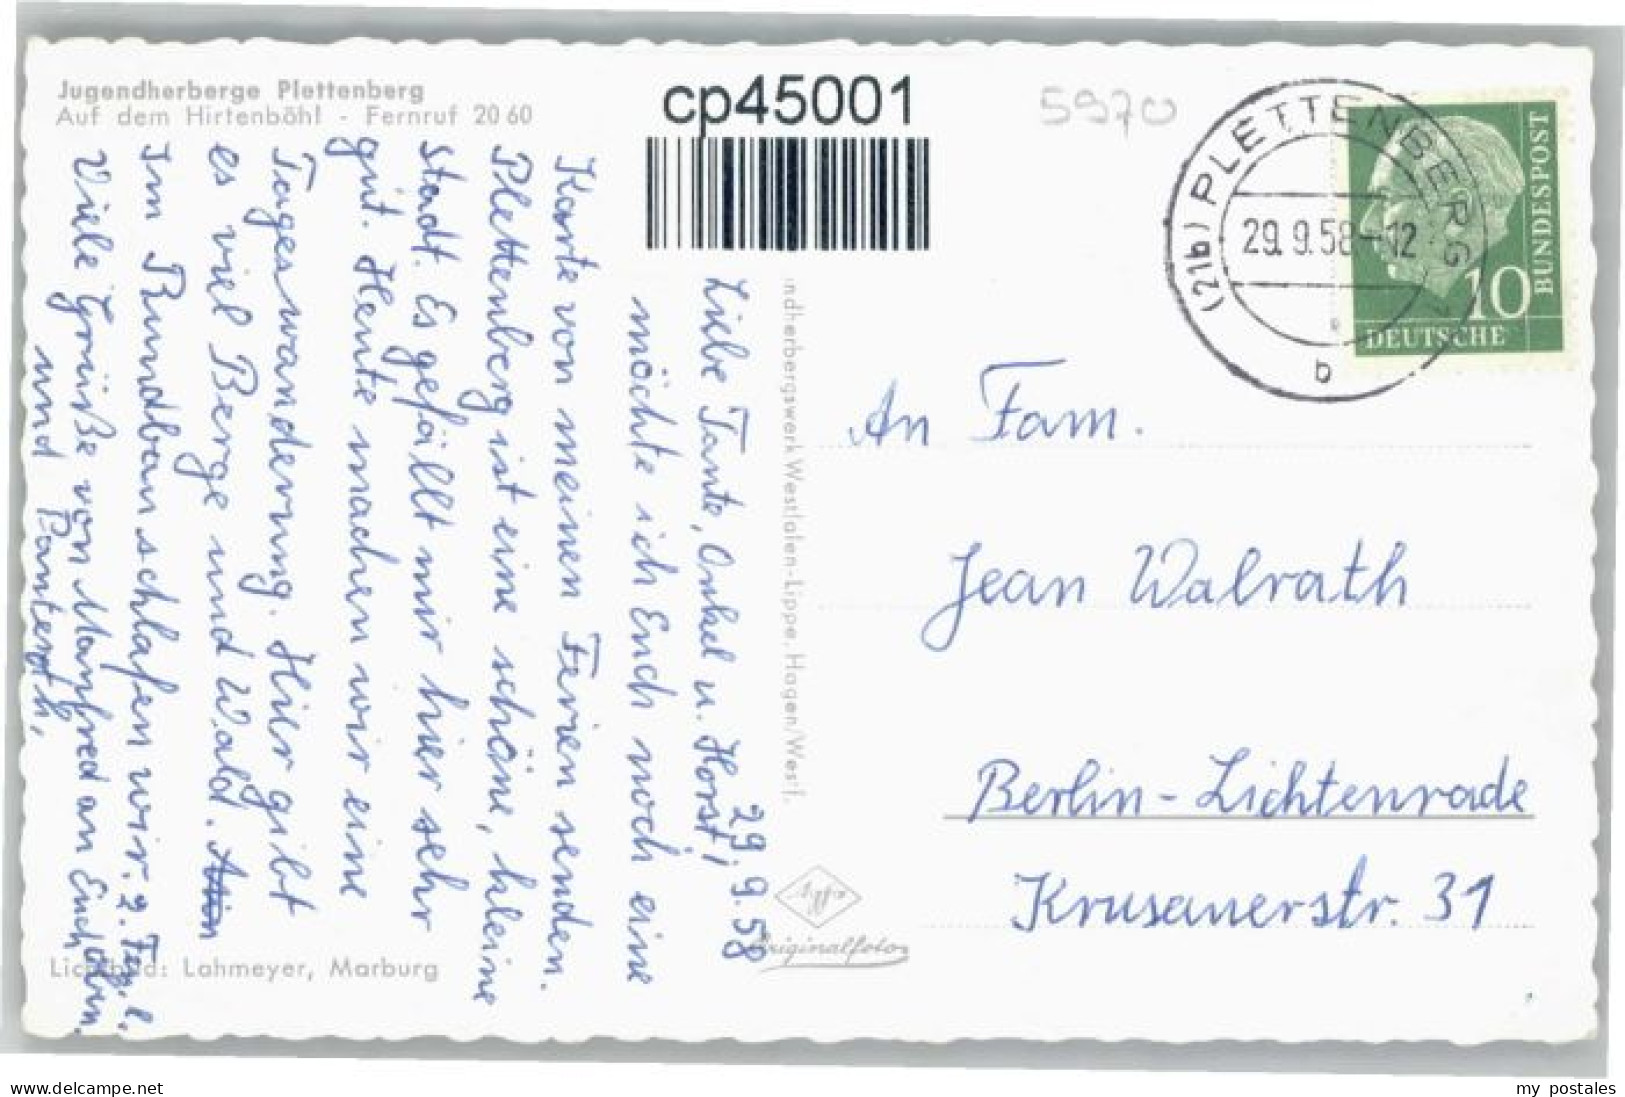 Jugendherberge Plettenberg
Auf dem Hirtenböhl - Fernruf 20 60
cp45001
5970
(21b) PLETTENBERG
29.9.58-12
b
10
BUNDESPOST
DEUTSCHE
29.9.58
Liebe Tante, Onkel u. Horst,
möchte ich Euch noch eine
Karte von meinen Ferien senden.
Plettenberg ist eine schöne, kleine
Stadt. Es gefällt mir hier sehr
gut. Heute machen wir eine
Tageswanderung. Hier gibt
es viel Berge und Wald.
Im Rundbau schlafen wir. 2. Fen. l.
Viele Grüße von Manfred an Euch
und
ndherbergswerk Westfalen-Lippe, Hagen/Westf.
An Fam.
Jean Walrath
Berlin-Lichtenrade
Krusauerstr. 31
Agfa
Originalfoto
Lichtbild: Lahmeyer, Marburg
www.delcampe.net
my postales